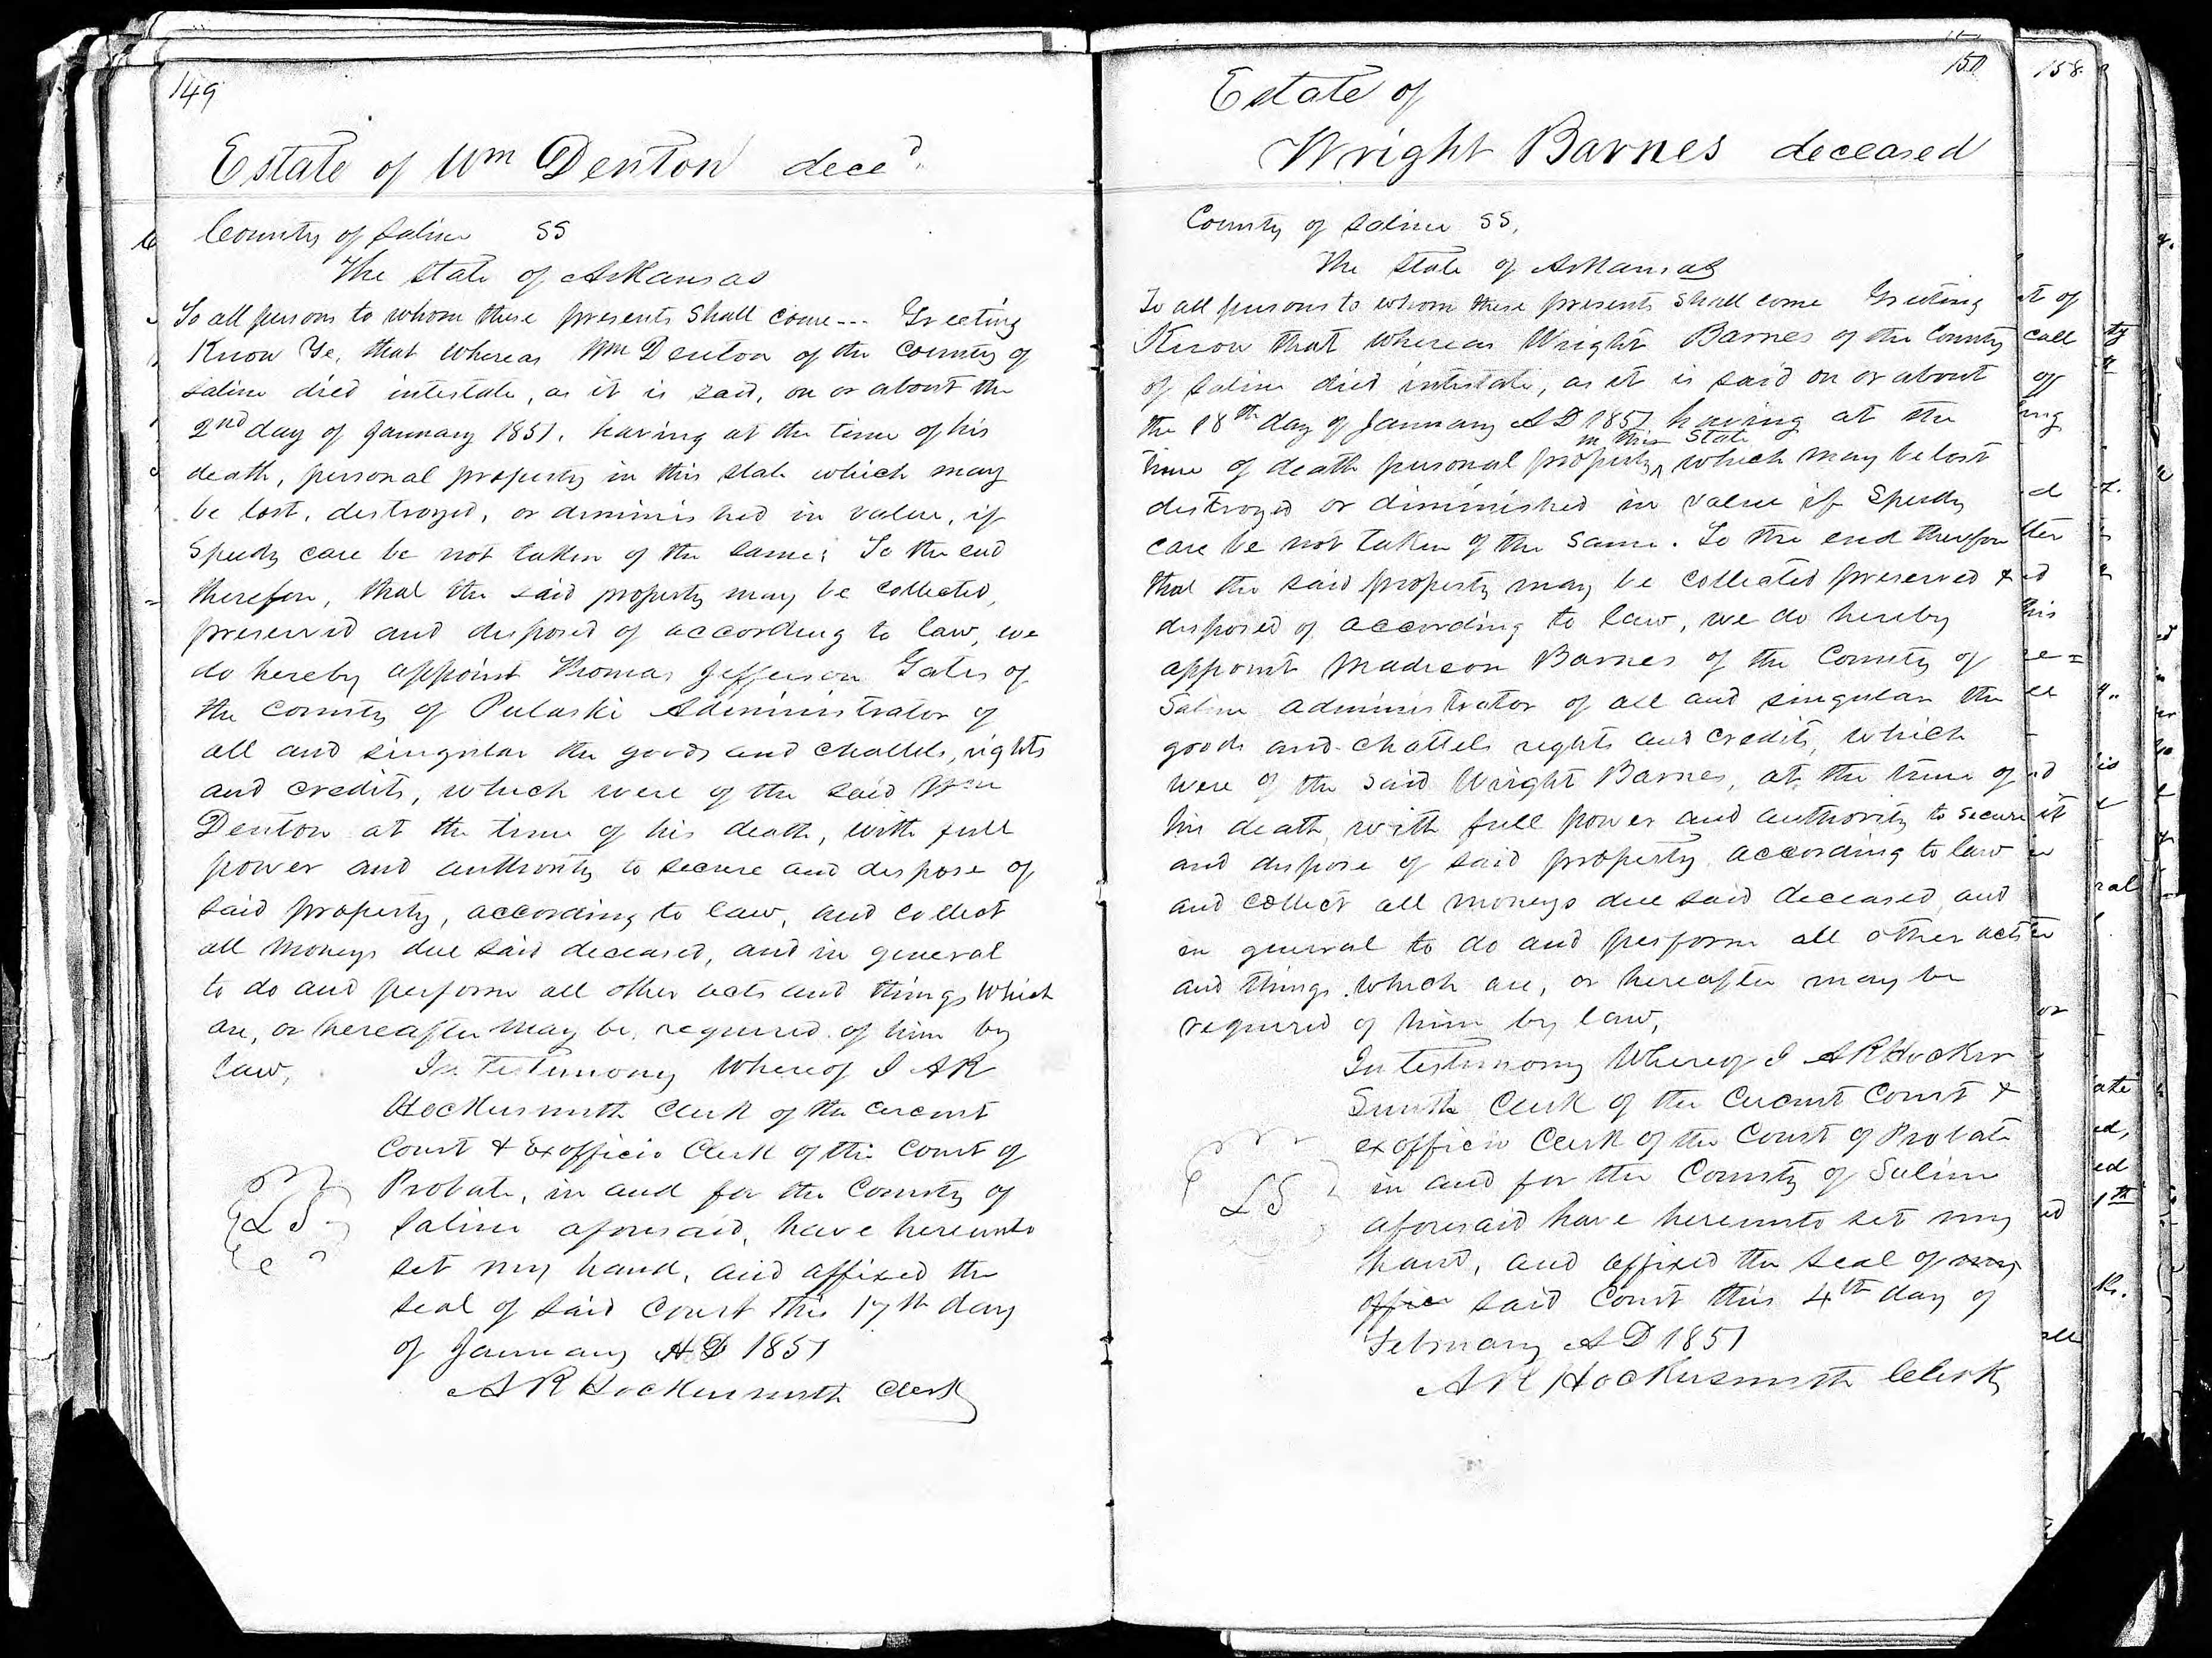 149
Estate of Wm Denton deced
County of Saline SS
The State of Arkansas
To all persons to whom these presents Shall come --- Greeting
Know Ye, that whereas Wm Denton of the County of
Saline died intestate, as it is said, on or about the
2nd day of January 1851, having at the time of his
death, personal property in this state which may
be lost, destroyed, or diminished in value, if
Speedy care be not taken of the same; To the end
therefore, that the said property may be collected,
preserved and disposed of according to law, we
do hereby appoint Thomas Jefferson Gates of
the County of Pulaski Administrator of
all and singular the goods and chattels, rights
and credits, which were of the said Wm
Denton at the time of his death, with full
power and authority to secure and dispose of
said property, according to law, and collect
all moneys due said deceased, and in general
to do and perform all other acts and things which
are, or hereafter may be, required of him by
law, In Testimony Whereof I AR
Hockersmith Clerk of the Circuit
Court & Exofficio Clerk of the Court of
Probate, in and for the County of
LS
Saline aforesaid, have hereunto
set my hand, and affixed the
seal of said Court this 17th day
of January AD 1851
A R Hockersmith Clerk
150
Estate of
Wright Barnes deceased
County of Saline SS,
The State of Arkansas
To all persons to whom these presents Shall come Greeting
Know that whereas Wright Barnes of the County
of Saline died intestate, as it is said on or about
the 18th day of January AD 1851 having at the
in this State
time of death personal property ^ which may be lost
destroyed or diminished in value if Speedy
care be not taken of the same. To the end therefore
that the said property may be collected preserved &
disposed of according to law, we do hereby
appoint Madison Barnes of the County of
Saline administrator of all and singular the
goods and chattels rights and credits, which
were of the said Wright Barnes, at the time of
his death, with full power and authority to secure
and dispose of said property according to law
and collect all moneys due said deceased, and
in general to do and perform all other acts
and things which are, or hereafter may be
required of him by law,
In testimony Whereof I A R Hocker
Smith Clerk of the Circuit Court &
exofficio Clerk of the Court of Probate
in and for the County of Saline
LS
aforesaid have hereunto set my
hand, and affixed the seal of my
office said Court this 4th day of
February AD 1851
A R Hockersmith Clerk
158